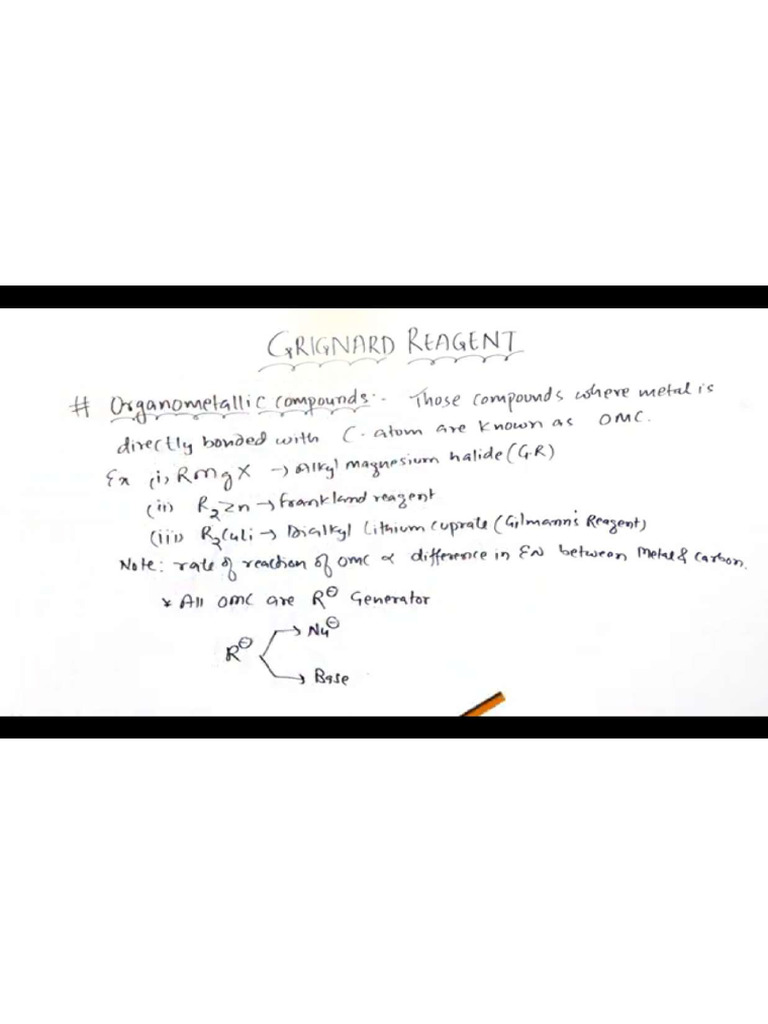 GRIGNARD REAGENT
# Organometallic compounds:- Those compounds where metal is
directly bonded with C-atom are known as OMC.
Ex (i) RMgX → Alkyl magnesium halide (GR)
(ii) R2Zn → Frankland reagent
(iii) R2CuLi → Dialkyl Lithium cuprate (Gilmann's Reagent)
Note: rate of reaction of OMC ∝ difference in EN between Metal & Carbon.
* All OMC are R⊖ Generator
R⊖ → Nu⊖
→ Base